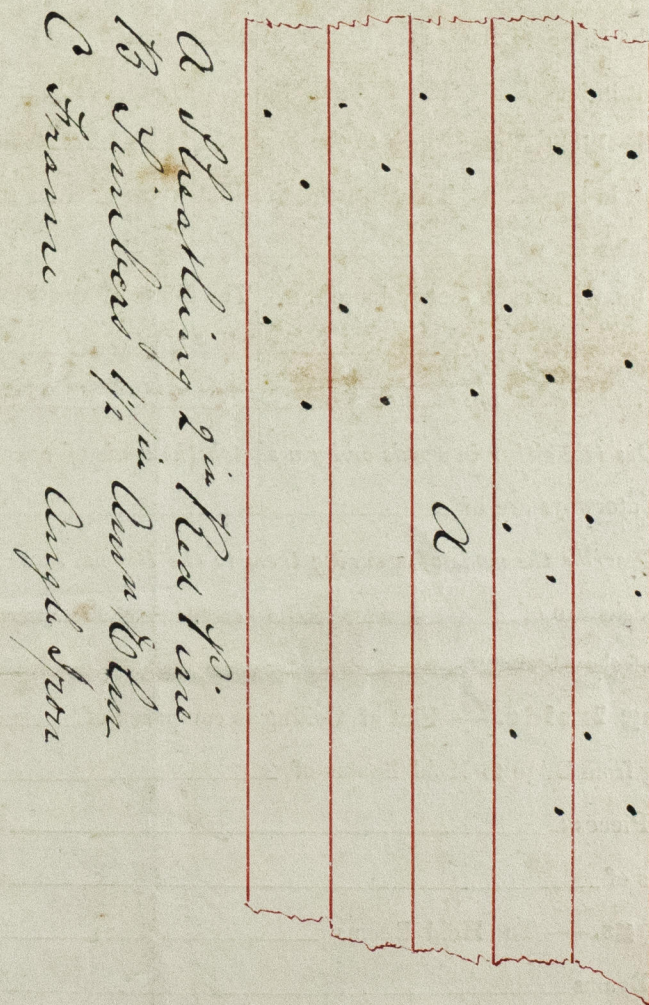 a
a Sheathing 2 in Red Pine
B Timbers 1 1/2 in Awn Elm
C Frame Angle Iron